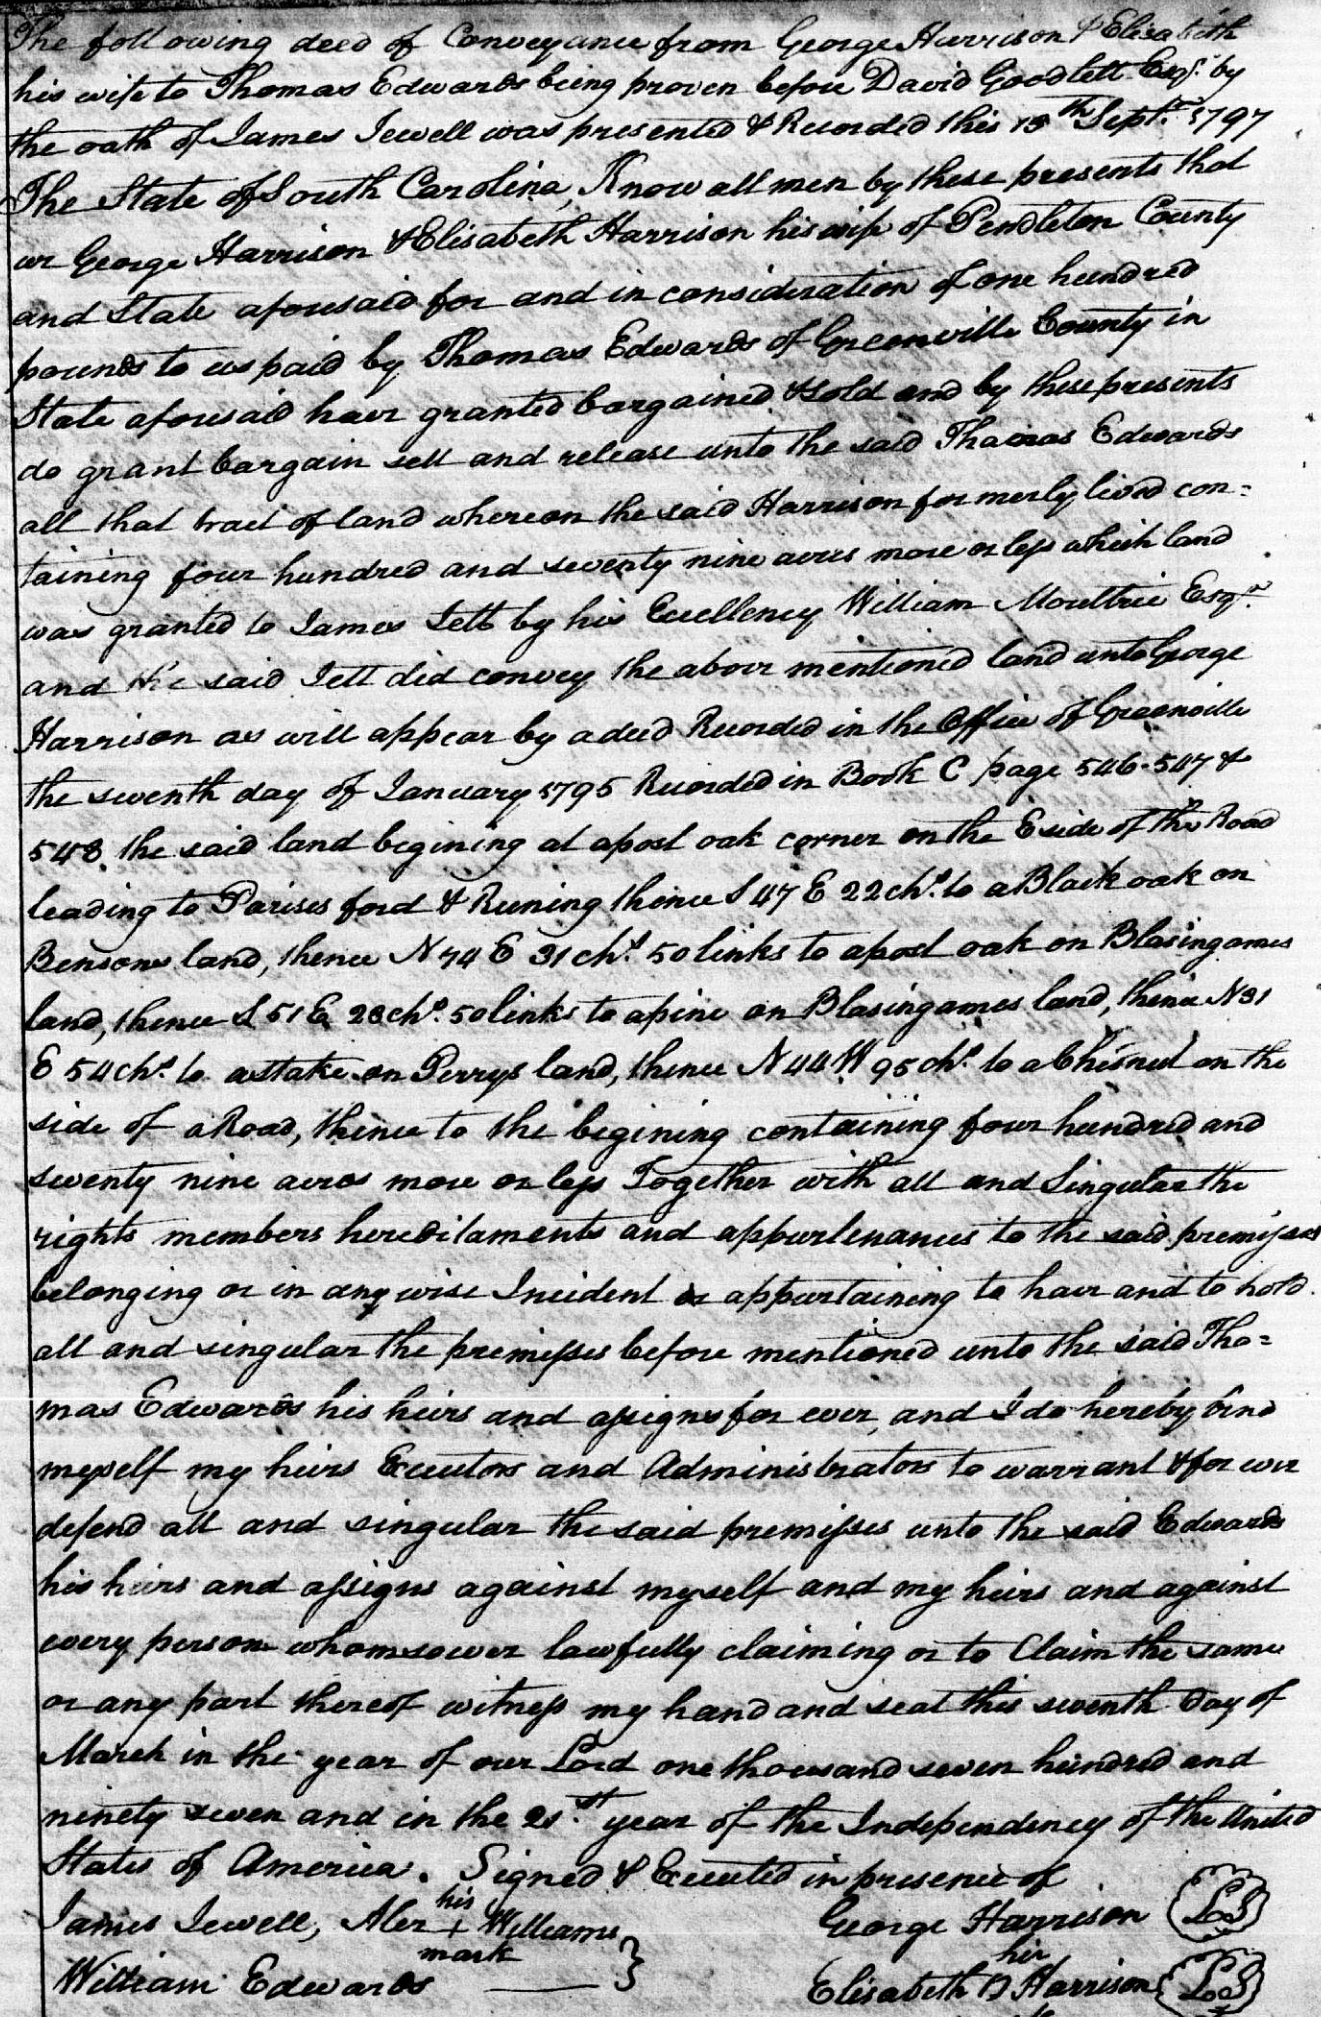 The following deed of Conveyance from George Harrison & Elisabeth
his wife to Thomas Edwards being proven before David Goodlett Esqr. by
the oath of James Jewell was presented & Recorded this 15th Septr. 1797
The State of South Carolina, Know all men by these presents that
we George Harrison & Elisabeth Harrison his wife of Pendleton County
and State aforesaid for and in consideration of one hundred
pounds to us paid by Thomas Edwards of Greenville County in
State aforesaid have granted bargained & sold and by these presents
do grant bargain sell and release unto the said Thomas Edwards
all that tract of land whereon the said Harrison formerly lived con=
taining four hundred and seventy nine acres more or less which land
was granted to James Jett by his Excellency William Moultrie Esqr.
and the said Jett did convey the above mentioned land unto George
Harrison as will appear by a deed Recorded in the Office of Greenville
the seventh day of January 1795 Recorded in Book C page 546-547 &
548, the said land begining at a post oak corner on the E side of the Road
leading to Parises ford & Runing thence S 47 E 22 chs. to a Black oak on
Bensons land, thence N 74 E 31 chs. 50 links to a post oak on Blasingames
land, thence S 51 E 28 chs. 50 links to a pine on Blasingames land, thence N 31
E 54 chs. to a stake on Perrys land, thence N 44 W 95 chs. to a Chesnut on the
side of a Road, thence to the begining containing four hundred and
seventy nine acres more or less Together with all and Singular the
rights members hereditaments and appurtenances to the said premisses
belonging or in any wise Incident or appurtaining to have and to hold
all and singular the premisses before mentioned unto the said Tho=
mas Edwards his heirs and assigns for ever, and I do hereby bind
myself my heirs Executors and Administrators to warrant & for ever
defend all and singular the said premisses unto the said Edwards
his heirs and assigns against myself and my heirs and against
every person whomsoever lawfully claiming or to Claim the same
or any part thereof witness my hand and seal this seventh day of
March in the year of our Lord one thousand seven hundred and
ninety seven and in the 21st. year of the Independency of the United
States of America. Signed & Executed in presence of
his
James Jewell, Alex + Williams George Harrison LS
mark her
William Edwards Elisabeth Harrison LS